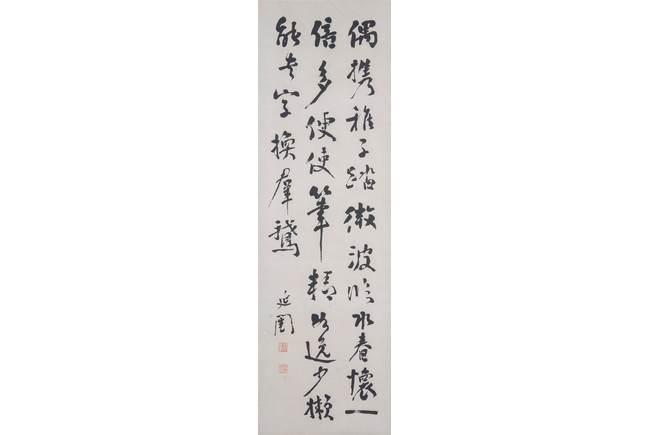 偶攜稚子踏微波臨水春懷一
倍多便使筆精如逸少懶
能書字換群鵝
延闓